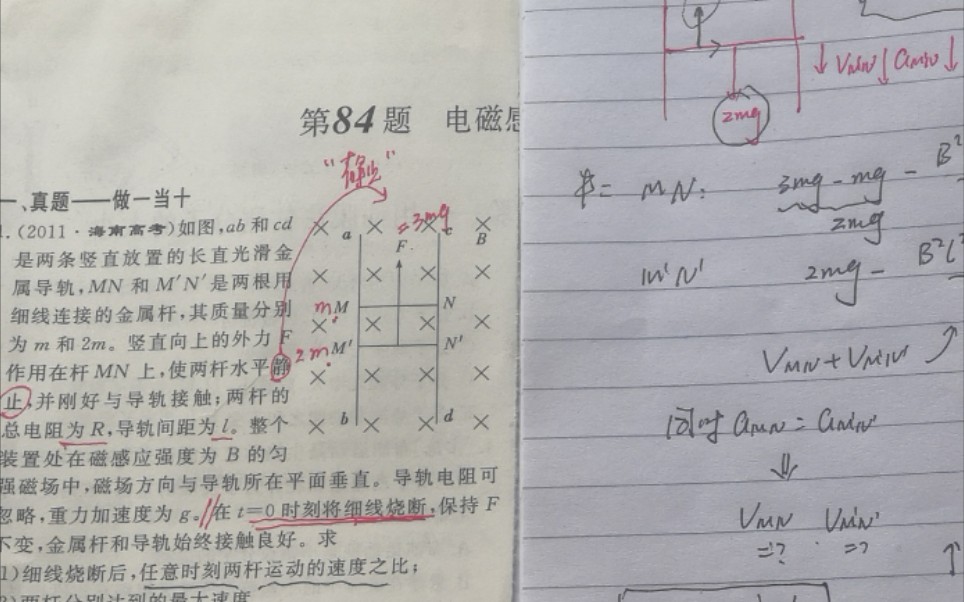 第84题 电磁感
"静止"
一、真题——做一当十
1.(2011·海南高考)如图,ab和cd
是两条竖直放置的长直光滑金
属导轨,MN和M′N′是两根用
细线连接的金属杆,其质量分别
为m和2m。竖直向上的外力F
作用在杆MN上,使两杆水平静
止,并刚好与导轨接触;两杆的
总电阻为R,导轨间距为l。整个
装置处在磁感应强度为B的匀
强磁场中,磁场方向与导轨所在平面垂直。导轨电阻可
忽略,重力加速度为g。在t=0时刻将细线烧断,保持F
不变,金属杆和导轨始终接触良好。求
1)细线烧断后,任意时刻两杆运动的速度之比;
2)两杆分别达到的最大速度
a F =3mg c B
m M N
2m M′ N′
b d
2mg
↓ VMN↓ aMN↓
MN: 3mg - mg - B²
2mg
M′N′ 2mg - B²l²
VMN + VM′N′
同时 aMN = aM′N′
⇓
VMN VM′N′
=? =?